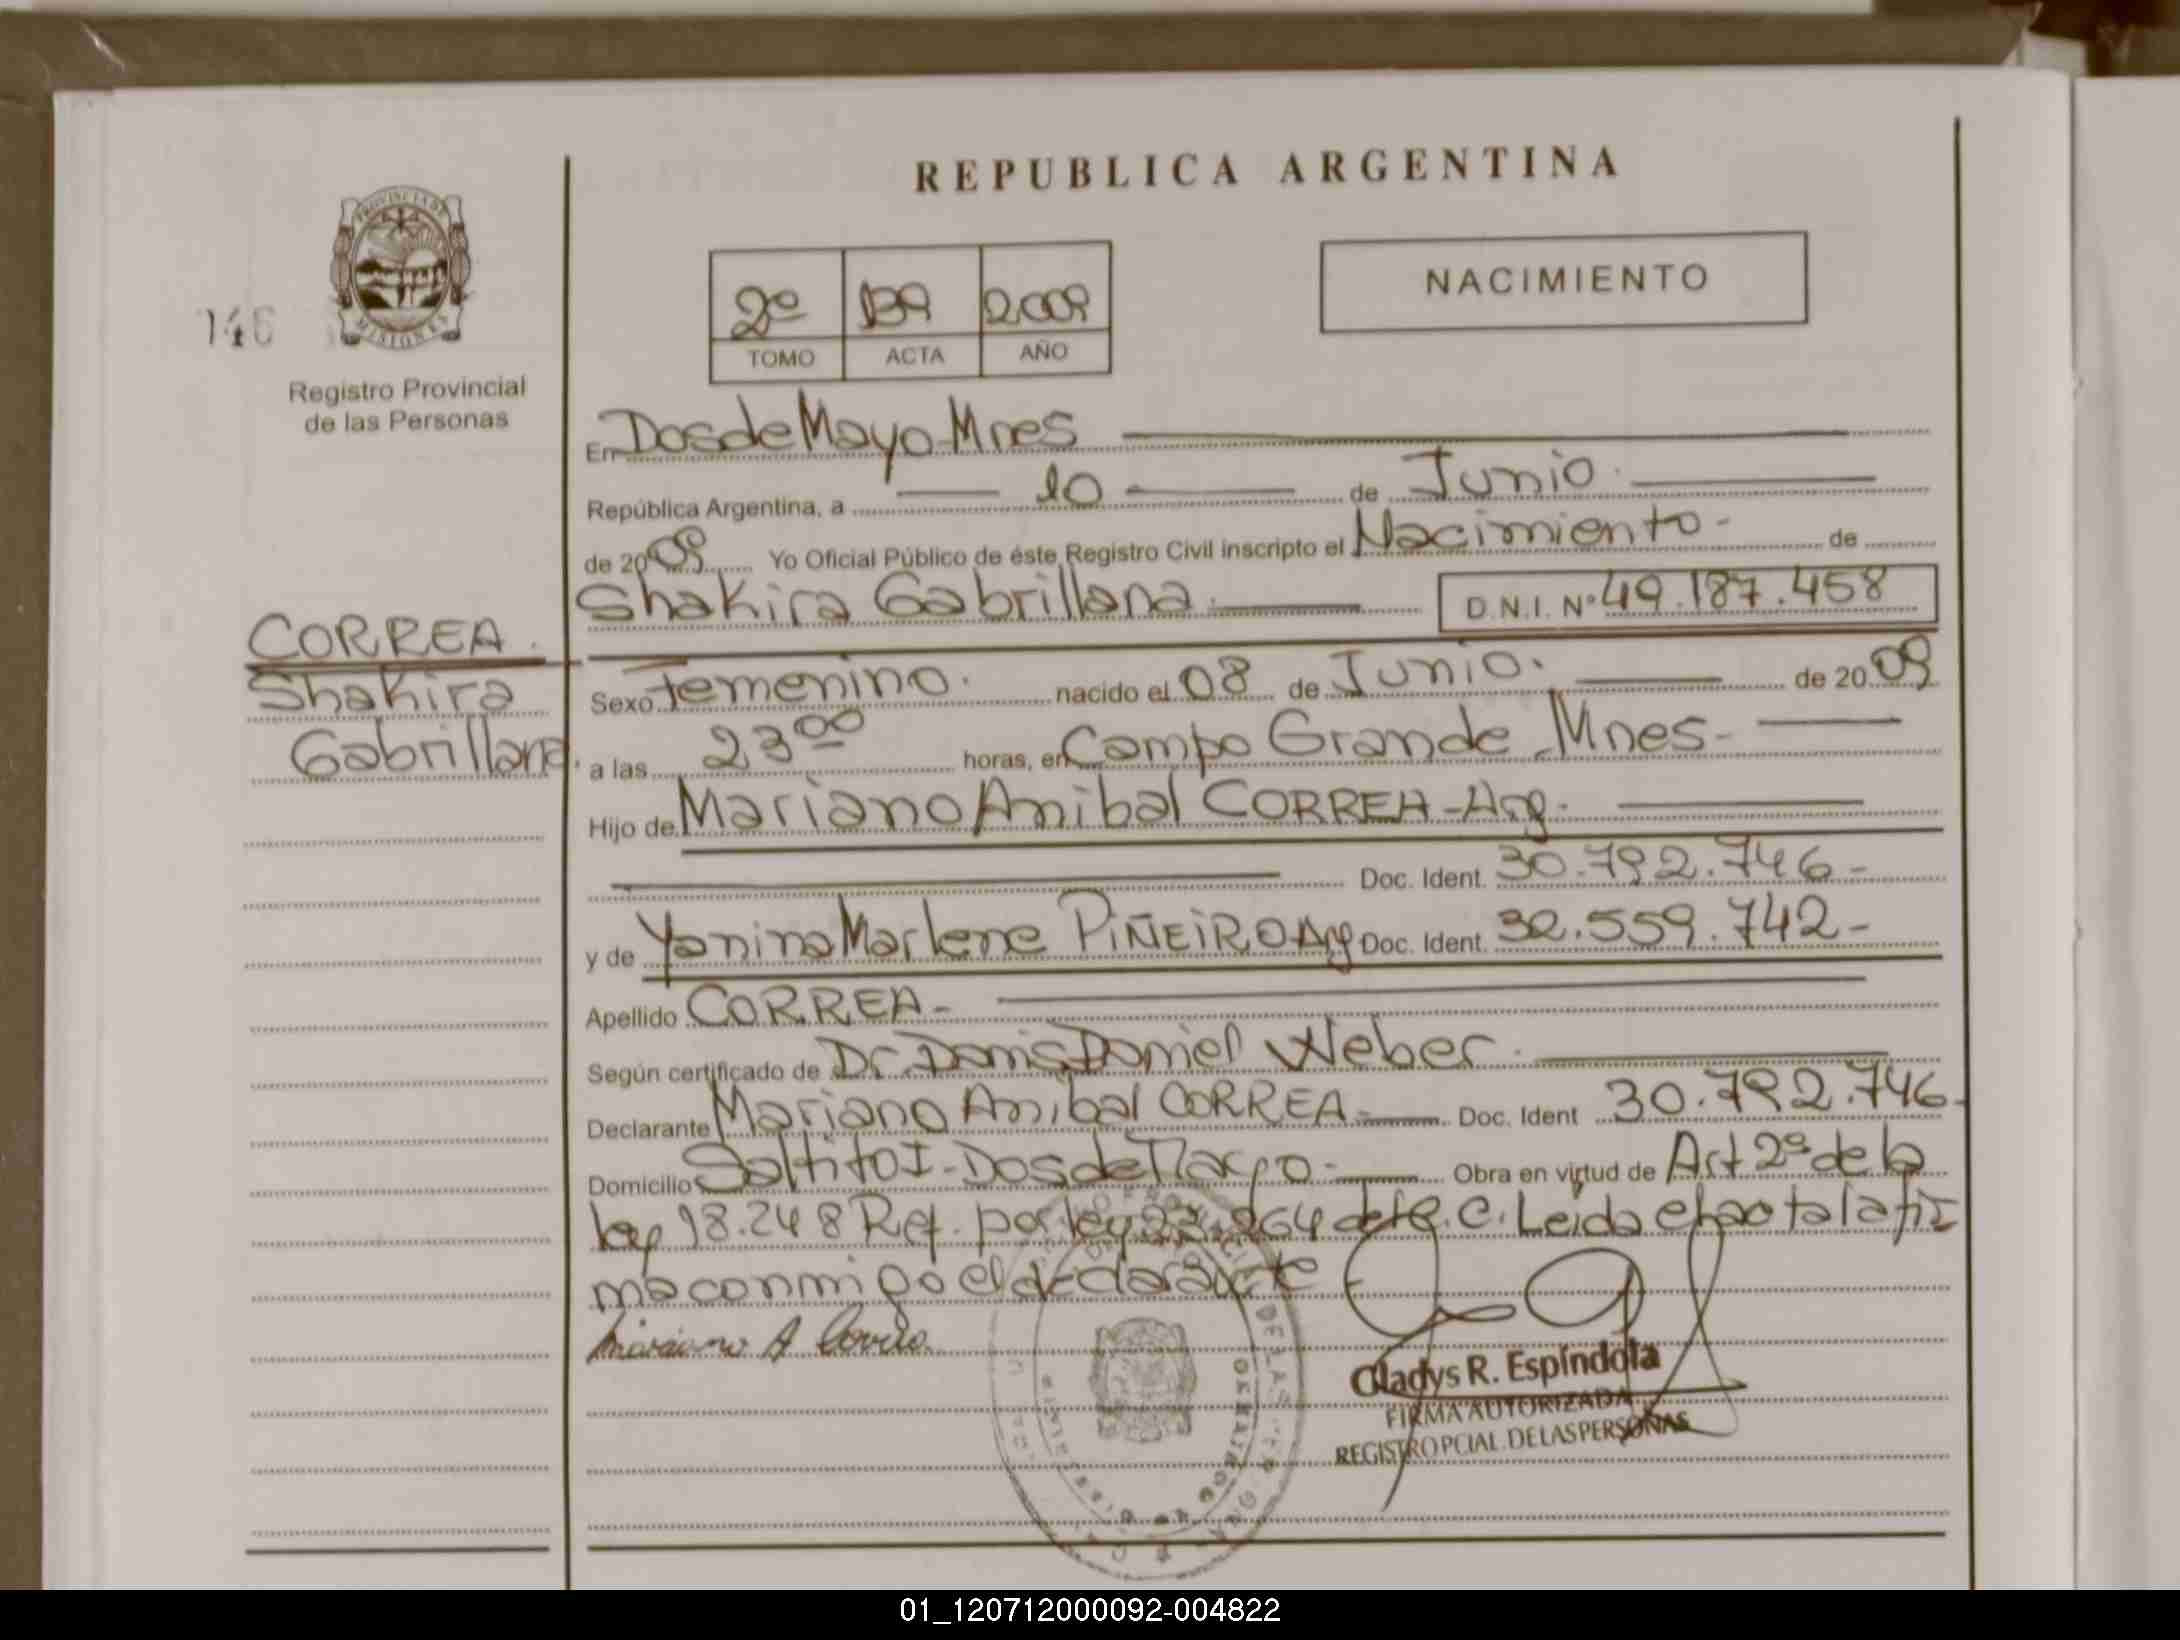 REPUBLICA ARGENTINA
PROVINCIA DE
MISIONES
146
Registro Provincial
de las Personas
2º 139 2.009
TOMO ACTA AÑO
NACIMIENTO
En Dos de Mayo - Mnes
República Argentina, a 10 de Junio.
de 2009 Yo Oficial Público de éste Registro Civil inscripto el Nacimiento - de
Shakira Gabrillana. D.N.I. Nº 49.187.458
CORREA.
Shakira
Gabrillana.
Sexo Femenino. nacido el 08 de Junio. de 2009
a las 23 00 horas, en Campo Grande - Mnes -
Hijo de Mariano Anibal CORREA - Arg.
Doc. Ident. 30.792.746-
y de Yanina Marlene PIÑEIRO Arg Doc. Ident. 32.559.742-
Apellido CORREA-
Según certificado de Dr. Danis Daniel Weber.
Declarante Mariano Anibal CORREA.- Doc. Ident 30.792.746-
Domicilio Saltito I - Dos de Mayo - Obra en virtud de Art 2º de la
ley 18.248 Ref. por ley 23.264 del R.C. Leida el acta la fir
ma conmigo el declarante
Mariano A Correa.
Gladys R. Espíndola
FIRMA AUTORIZADA
REGISTRO PCIAL. DE LAS PERSONAS
01_120712000092-004822